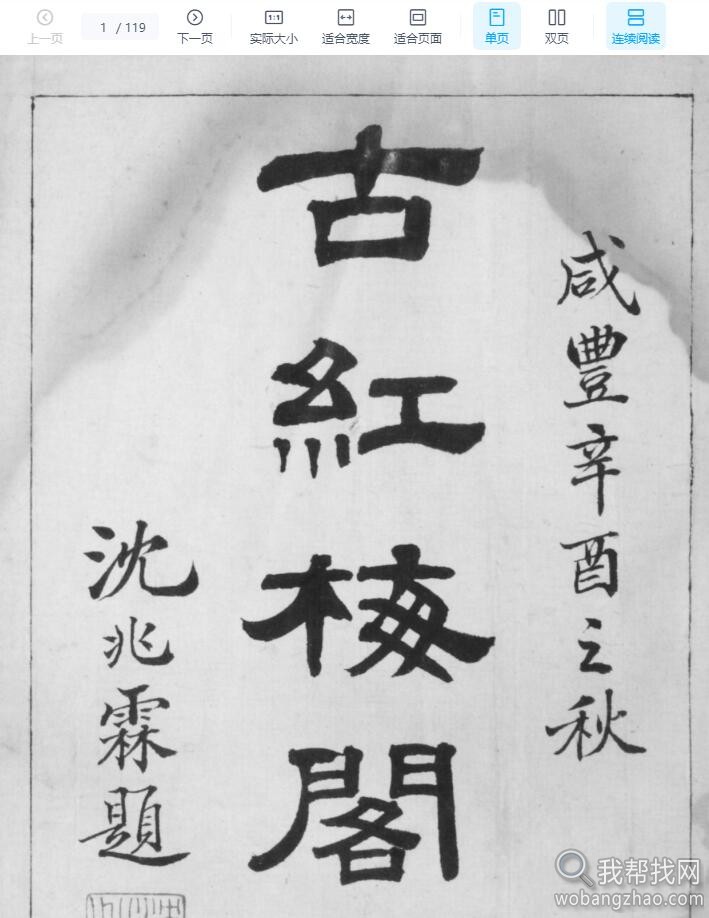 上一页 1 / 119 下一页 实际大小 适合宽度 适合页面 单页 双页 连续阅读
咸豐辛酉之秋
古紅梅閣
沈兆霖題
我帮找网
wobangzhao.com